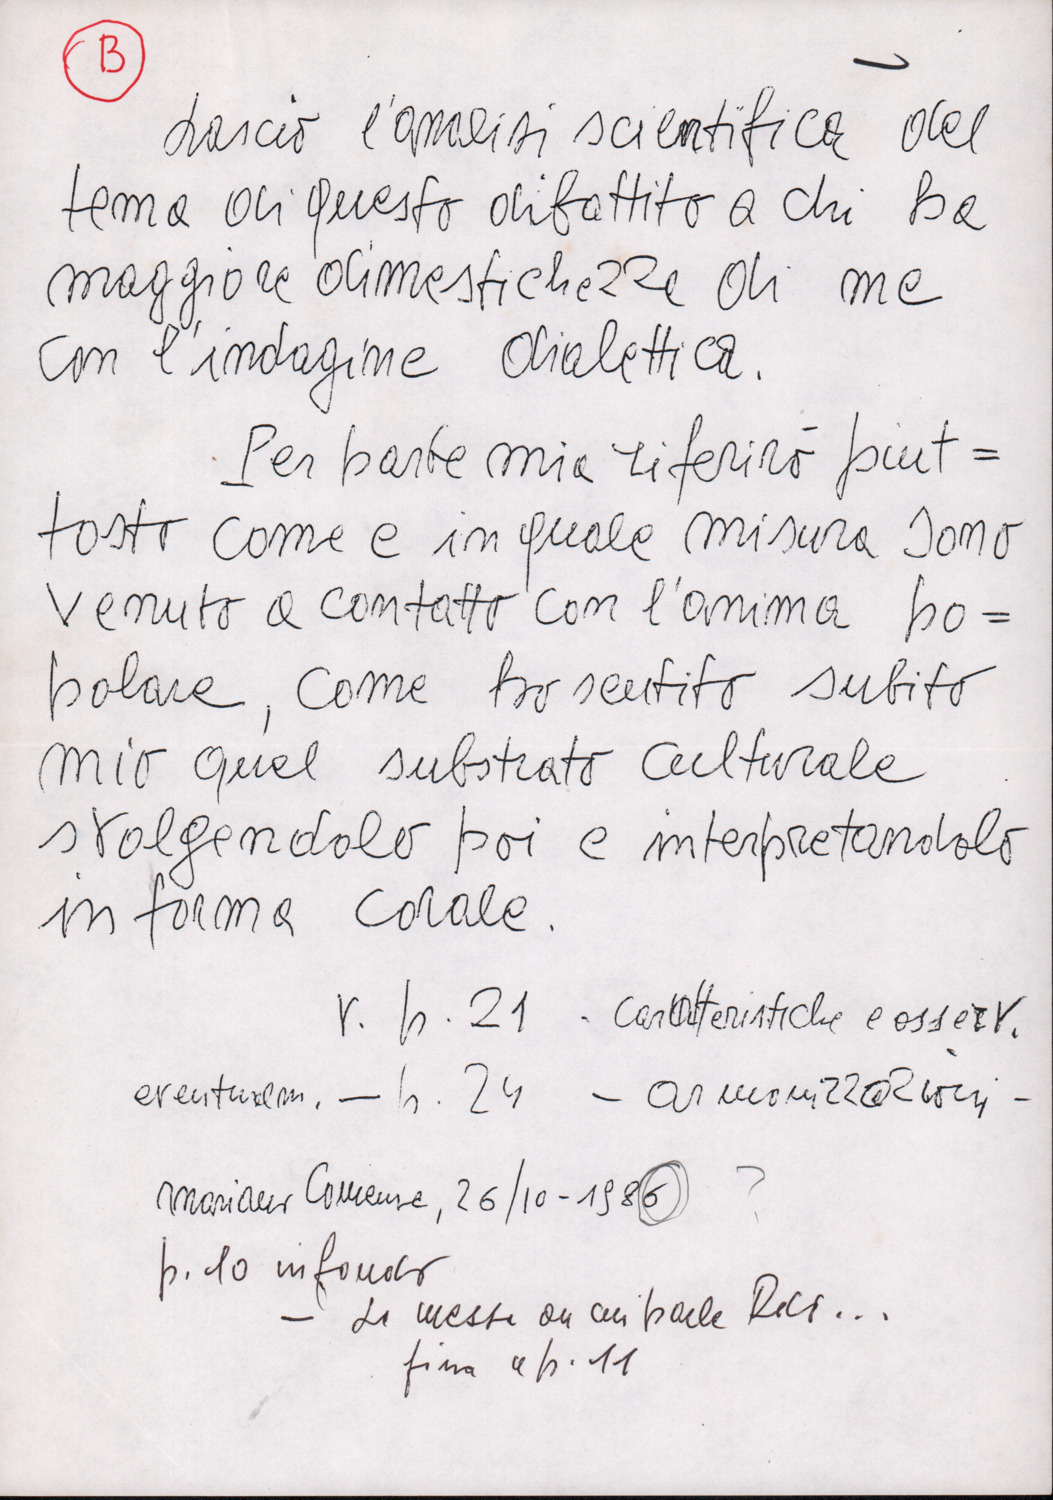 B
Lascio l'analisi scientifica del
tema di questo dibattito a chi ha
maggiore dimestichezza di me
con l'indagine dialettica.
Per parte mia riferirò piut=
tosto come e in quale misura sono
venuto a contatto con l'anima po=
polare, come ho sentito subito
mio quel substrato culturale
svolgendolo poi e interpretandolo
in forma corale.
v. p. 21 - caratteristiche e osserv.
eventualm. — p. 24 — armonizzazioni -
Mariano Comense, 26/10-1986 ?
p. 10 in fondo
— La messa cui parla ...
fino a p. 11